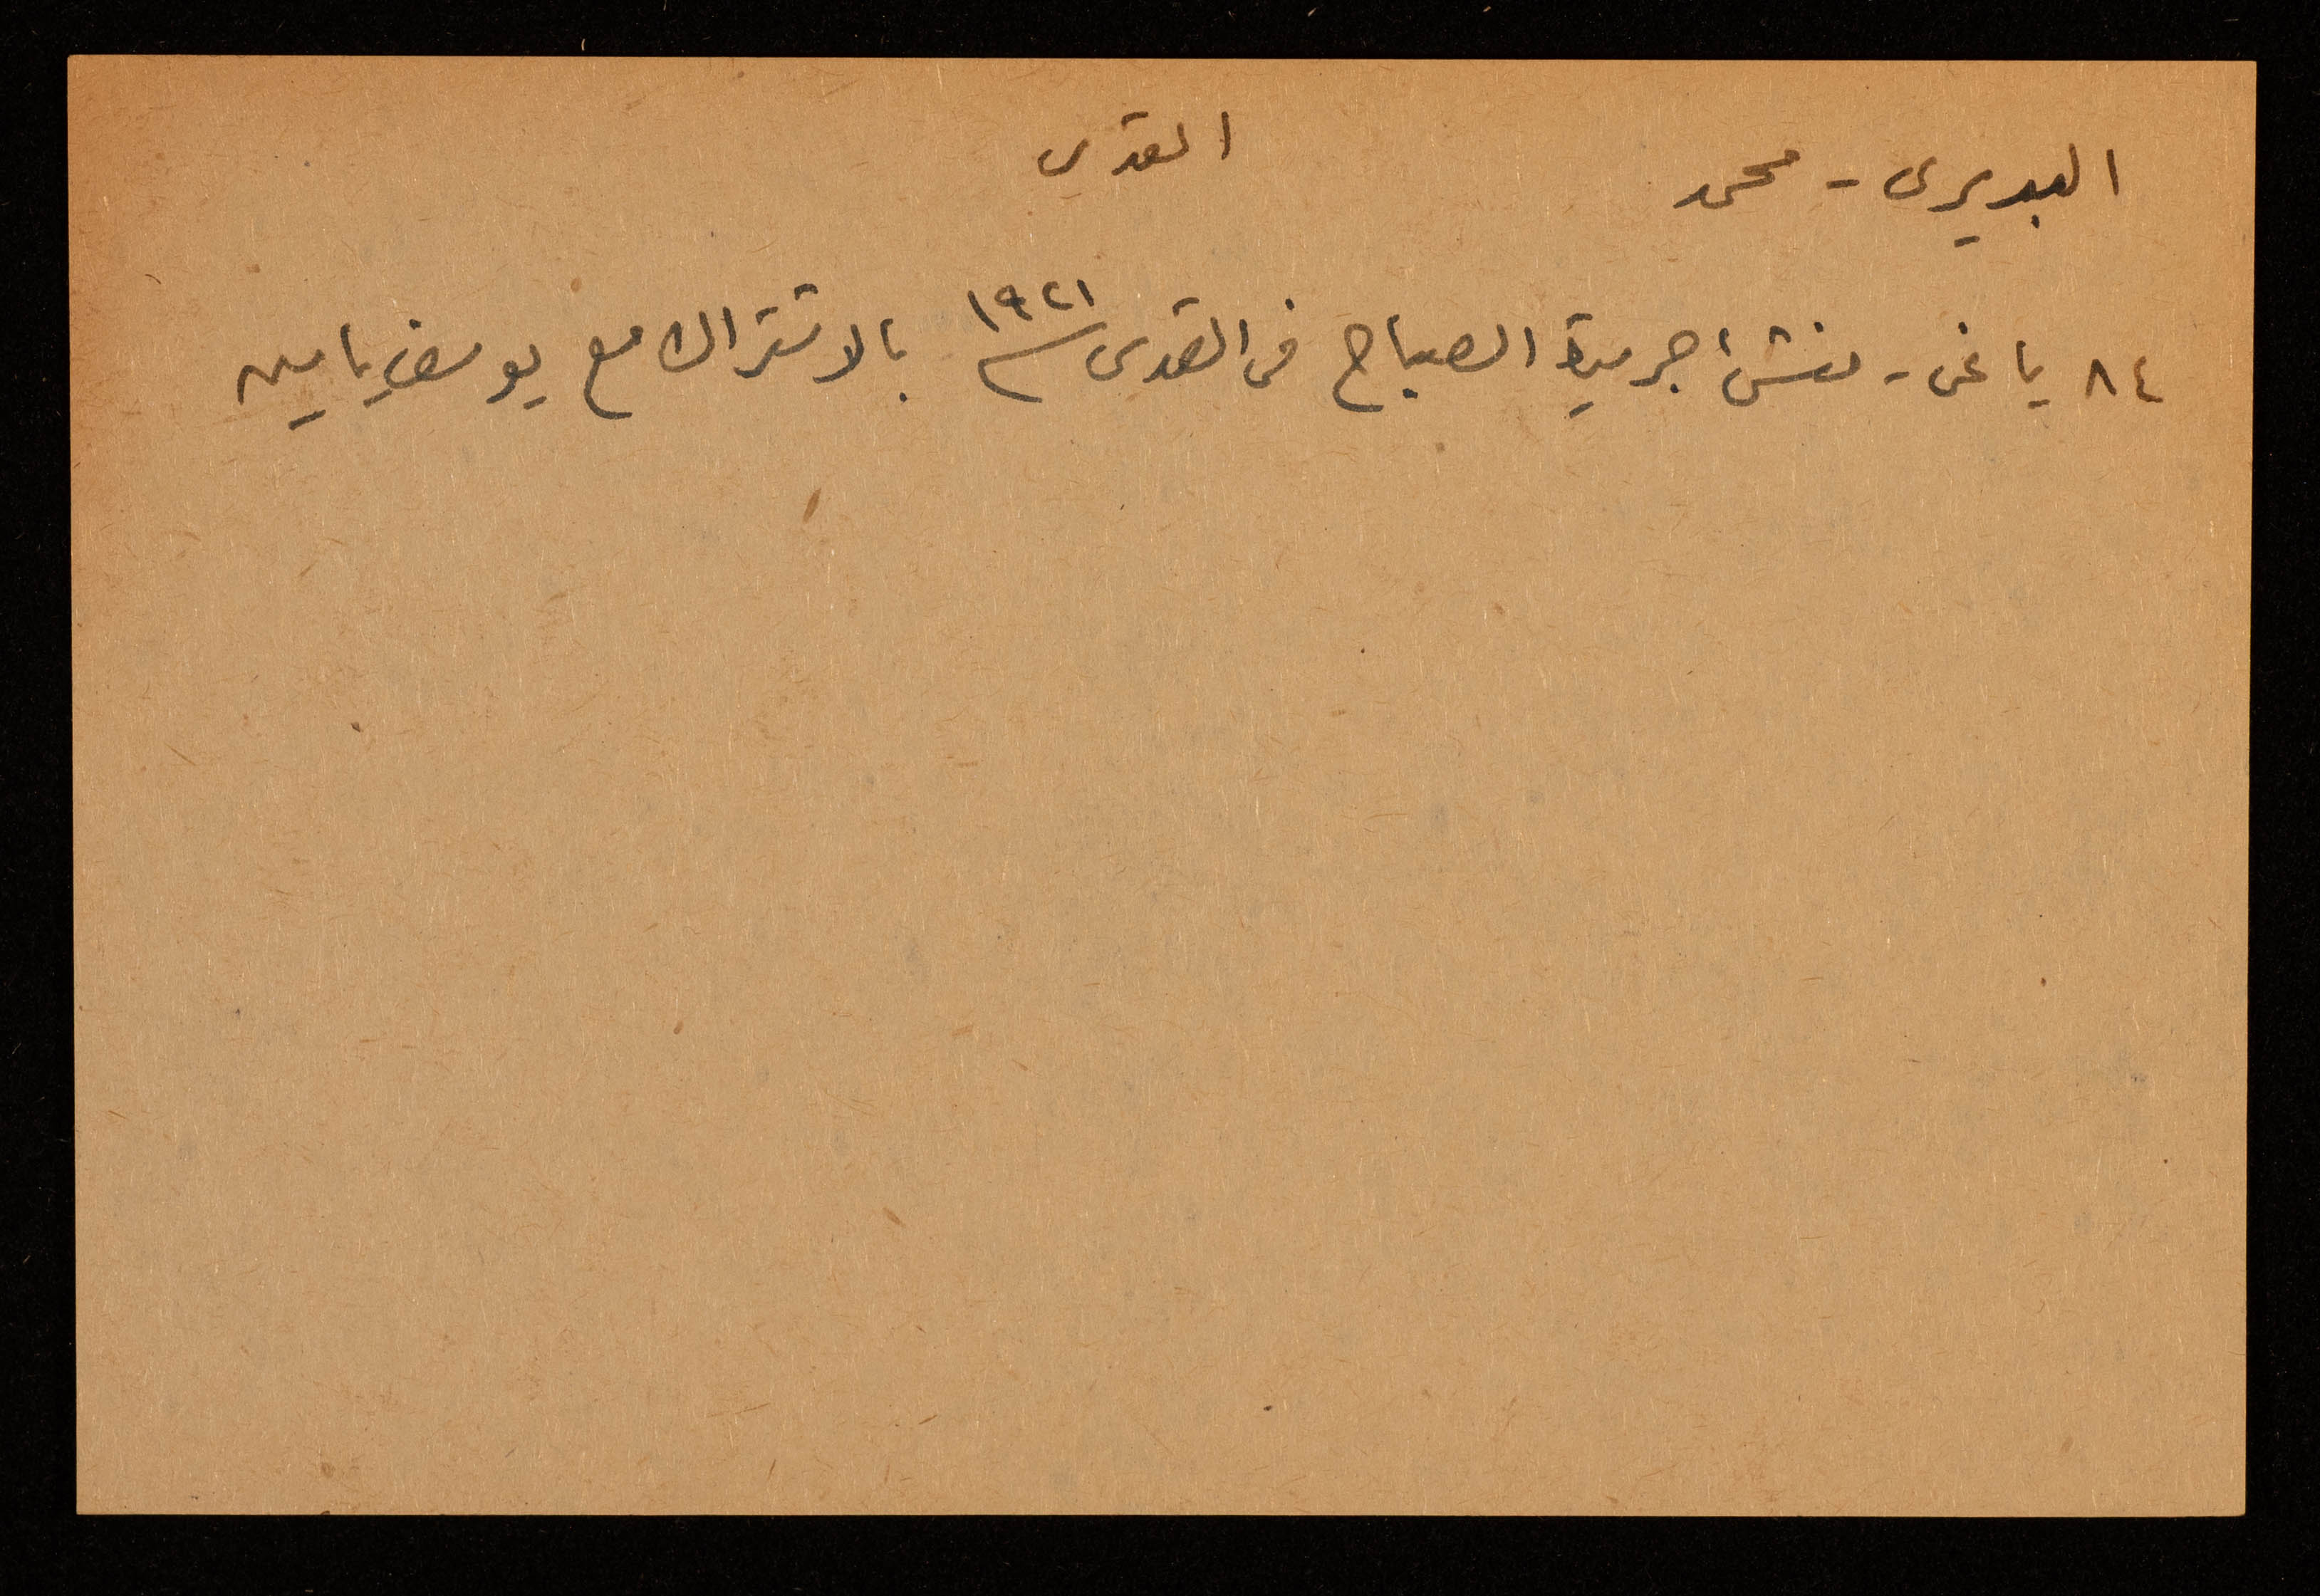 البديرى - محمد
القدس
٨٤ ياغى - منشئ جريدة الصباح فى القدس ١٩٢١ بالاشتراك مع يوسف ياسين